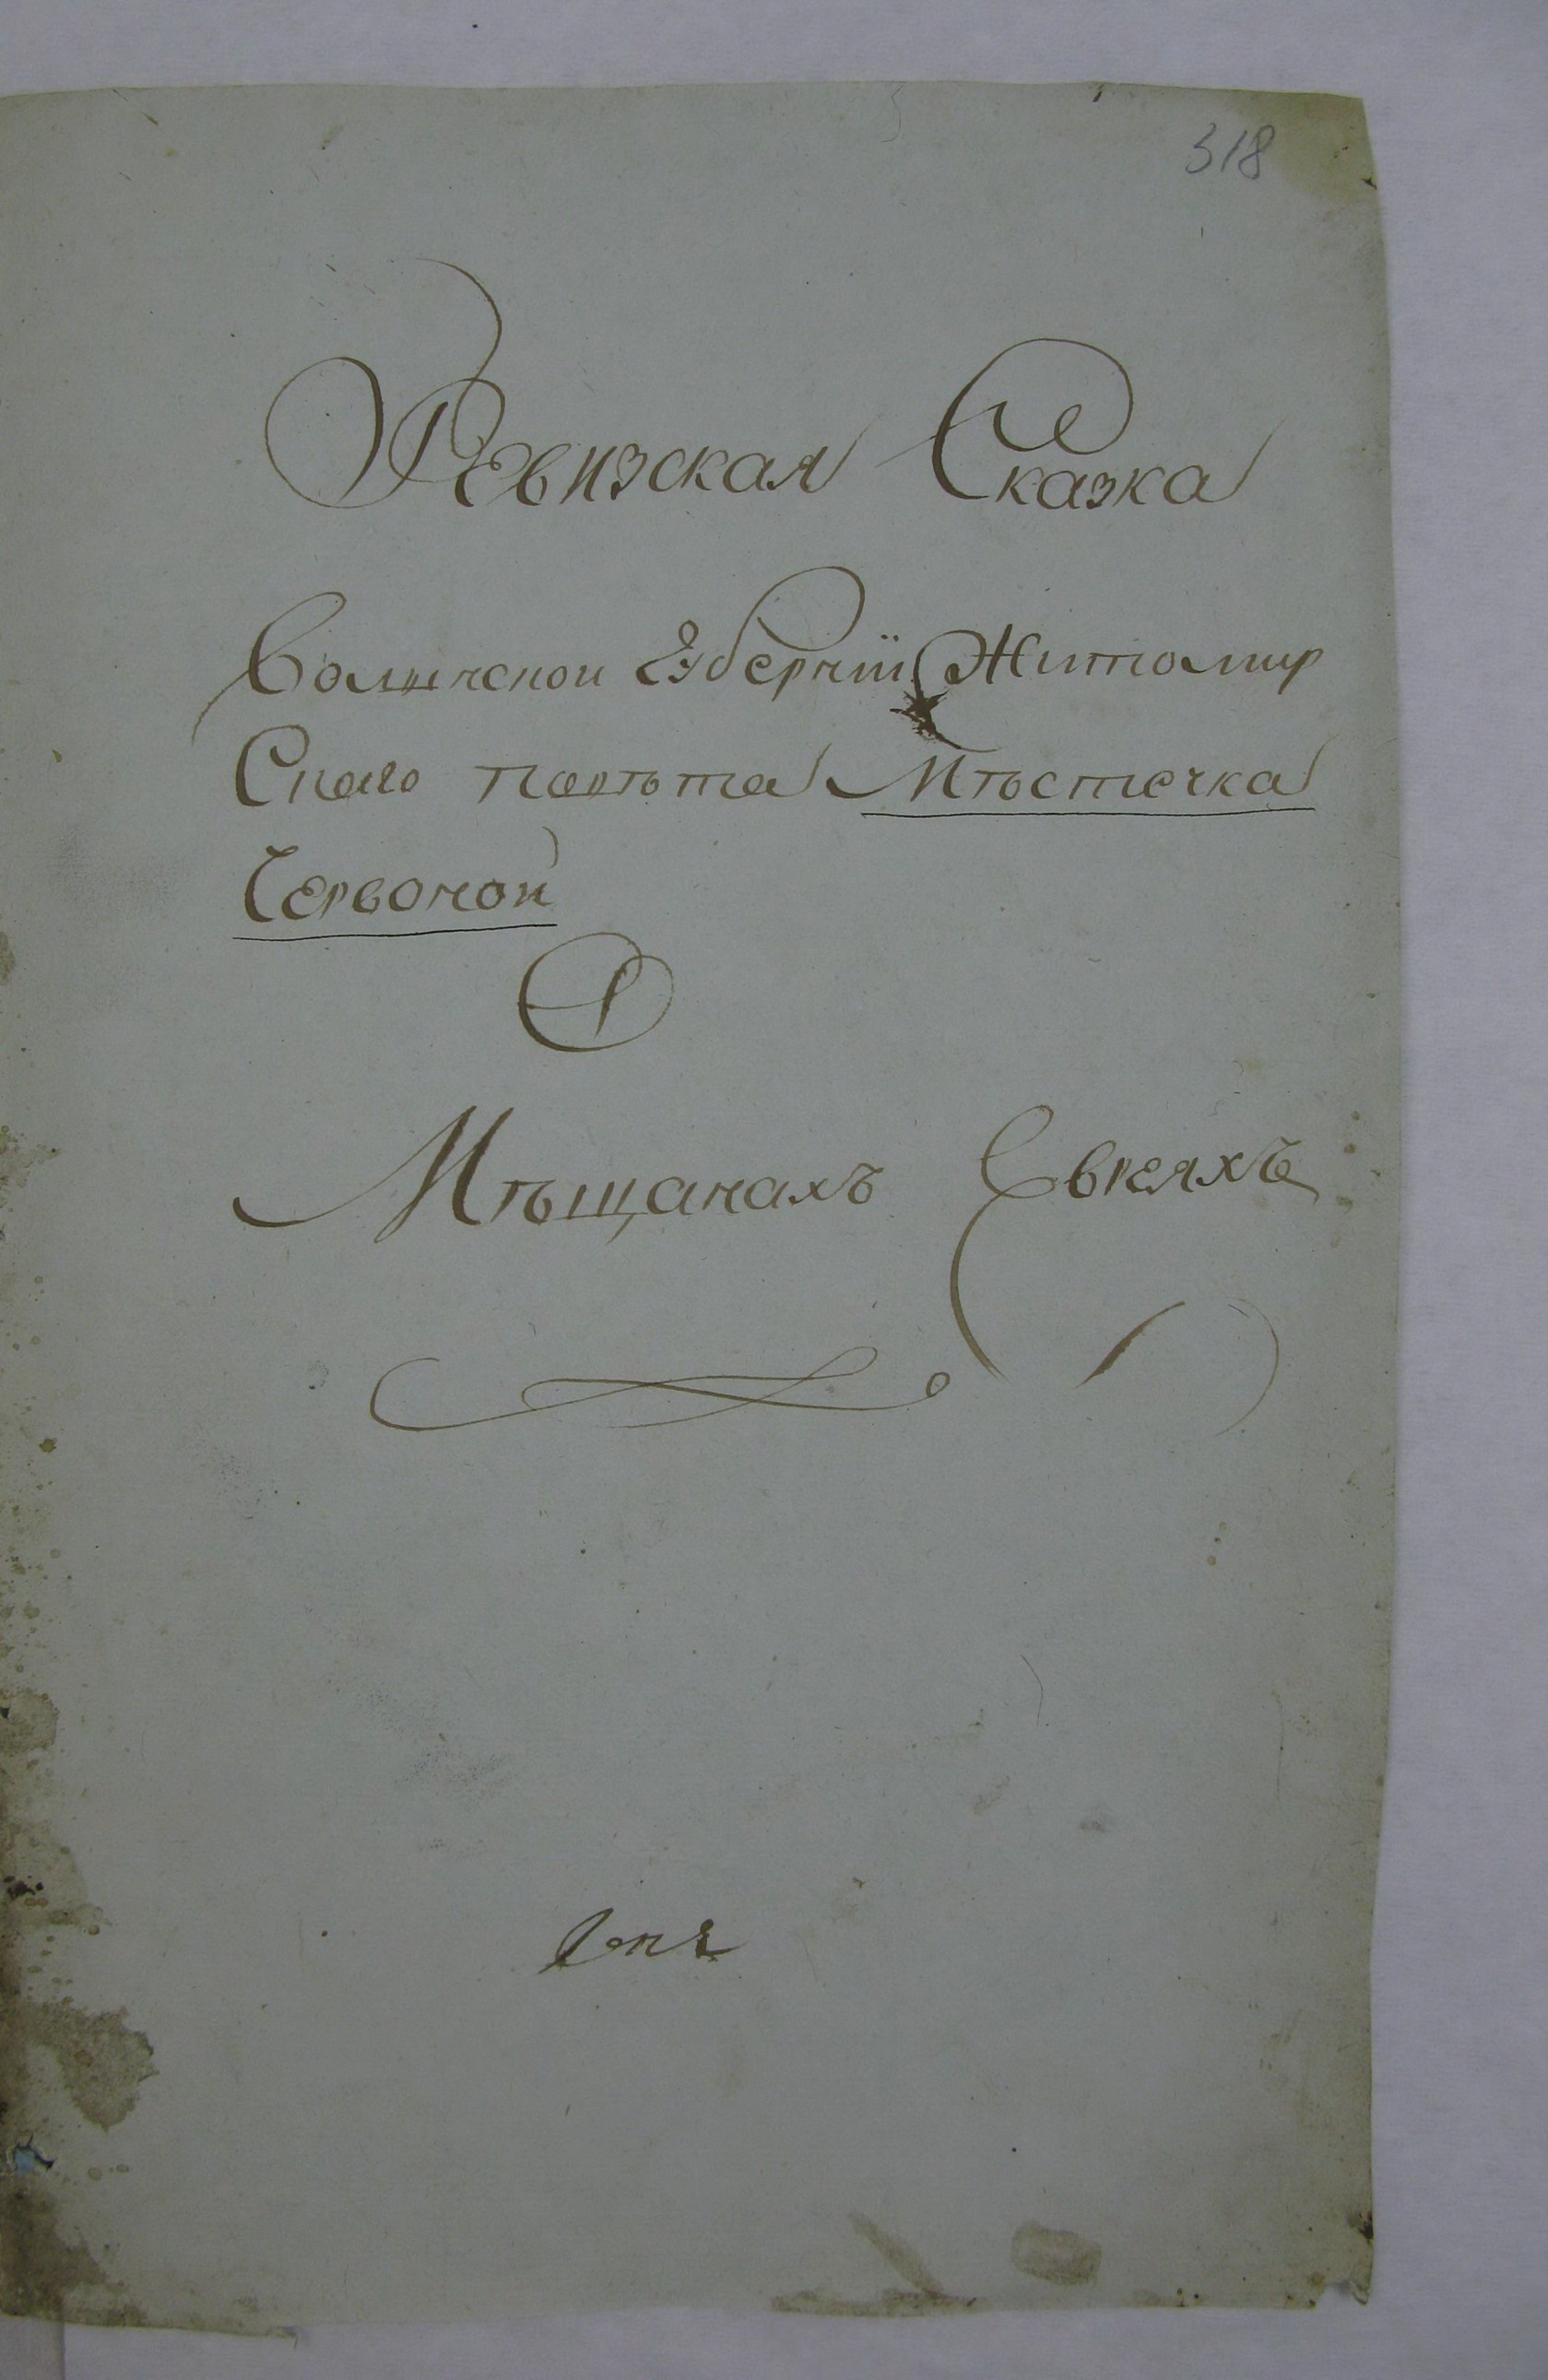 318
Ревизская Сказка
Волынской Губернии Житомир
Скаго повѣта Мѣстечка
Червоной
О
Мѣщанахъ Евреяхъ